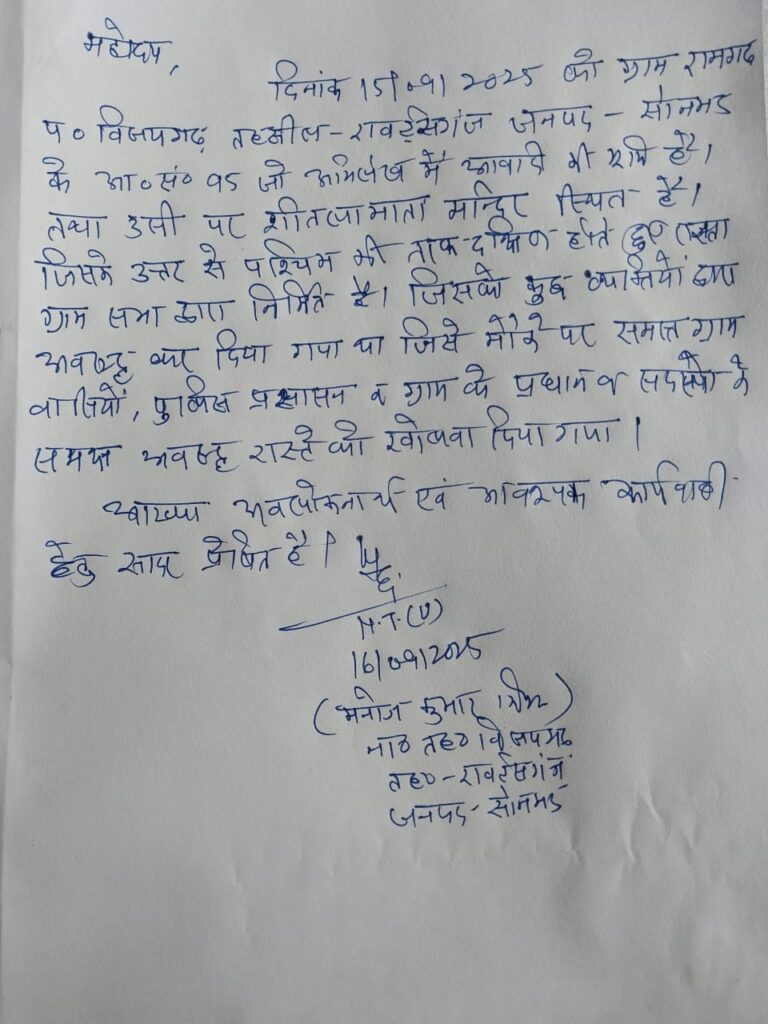 महोदय,
दिनांक 15/09/2025 को ग्राम रामगढ़
प० विजयगढ़ तहसील - रावर्ट्सगंज जनपद - सोनभद्र
के आ० सं० 95 जो अभिलेख में आबादी की भूमि है।
तथा उसी पर शीतला माता मन्दिर स्थित है।
जिसके उत्तर से पश्चिम की तरफ दक्षिण होते हुए रास्ता
ग्राम सभा द्वारा निर्मित है। जिसको कुछ व्यक्तियों द्वारा
अवरुद्ध कर दिया गया था जिसे मौके पर समस्त ग्राम
वासियों, पुलिस प्रशासन व ग्राम के प्रधान व सदस्यों के
समक्ष अवरुद्ध रास्ते को खोलवा दिया गया।
आख्या अवलोकनार्थ एवं आवश्यक कार्यवाही
हेतु सादर प्रेषित है।
N.T.(V)
16/09/2025
(मनोज कुमार मिश्र)
ना० तह० विजयगढ़
तह० - रावर्ट्सगंज
जनपद - सोनभद्र